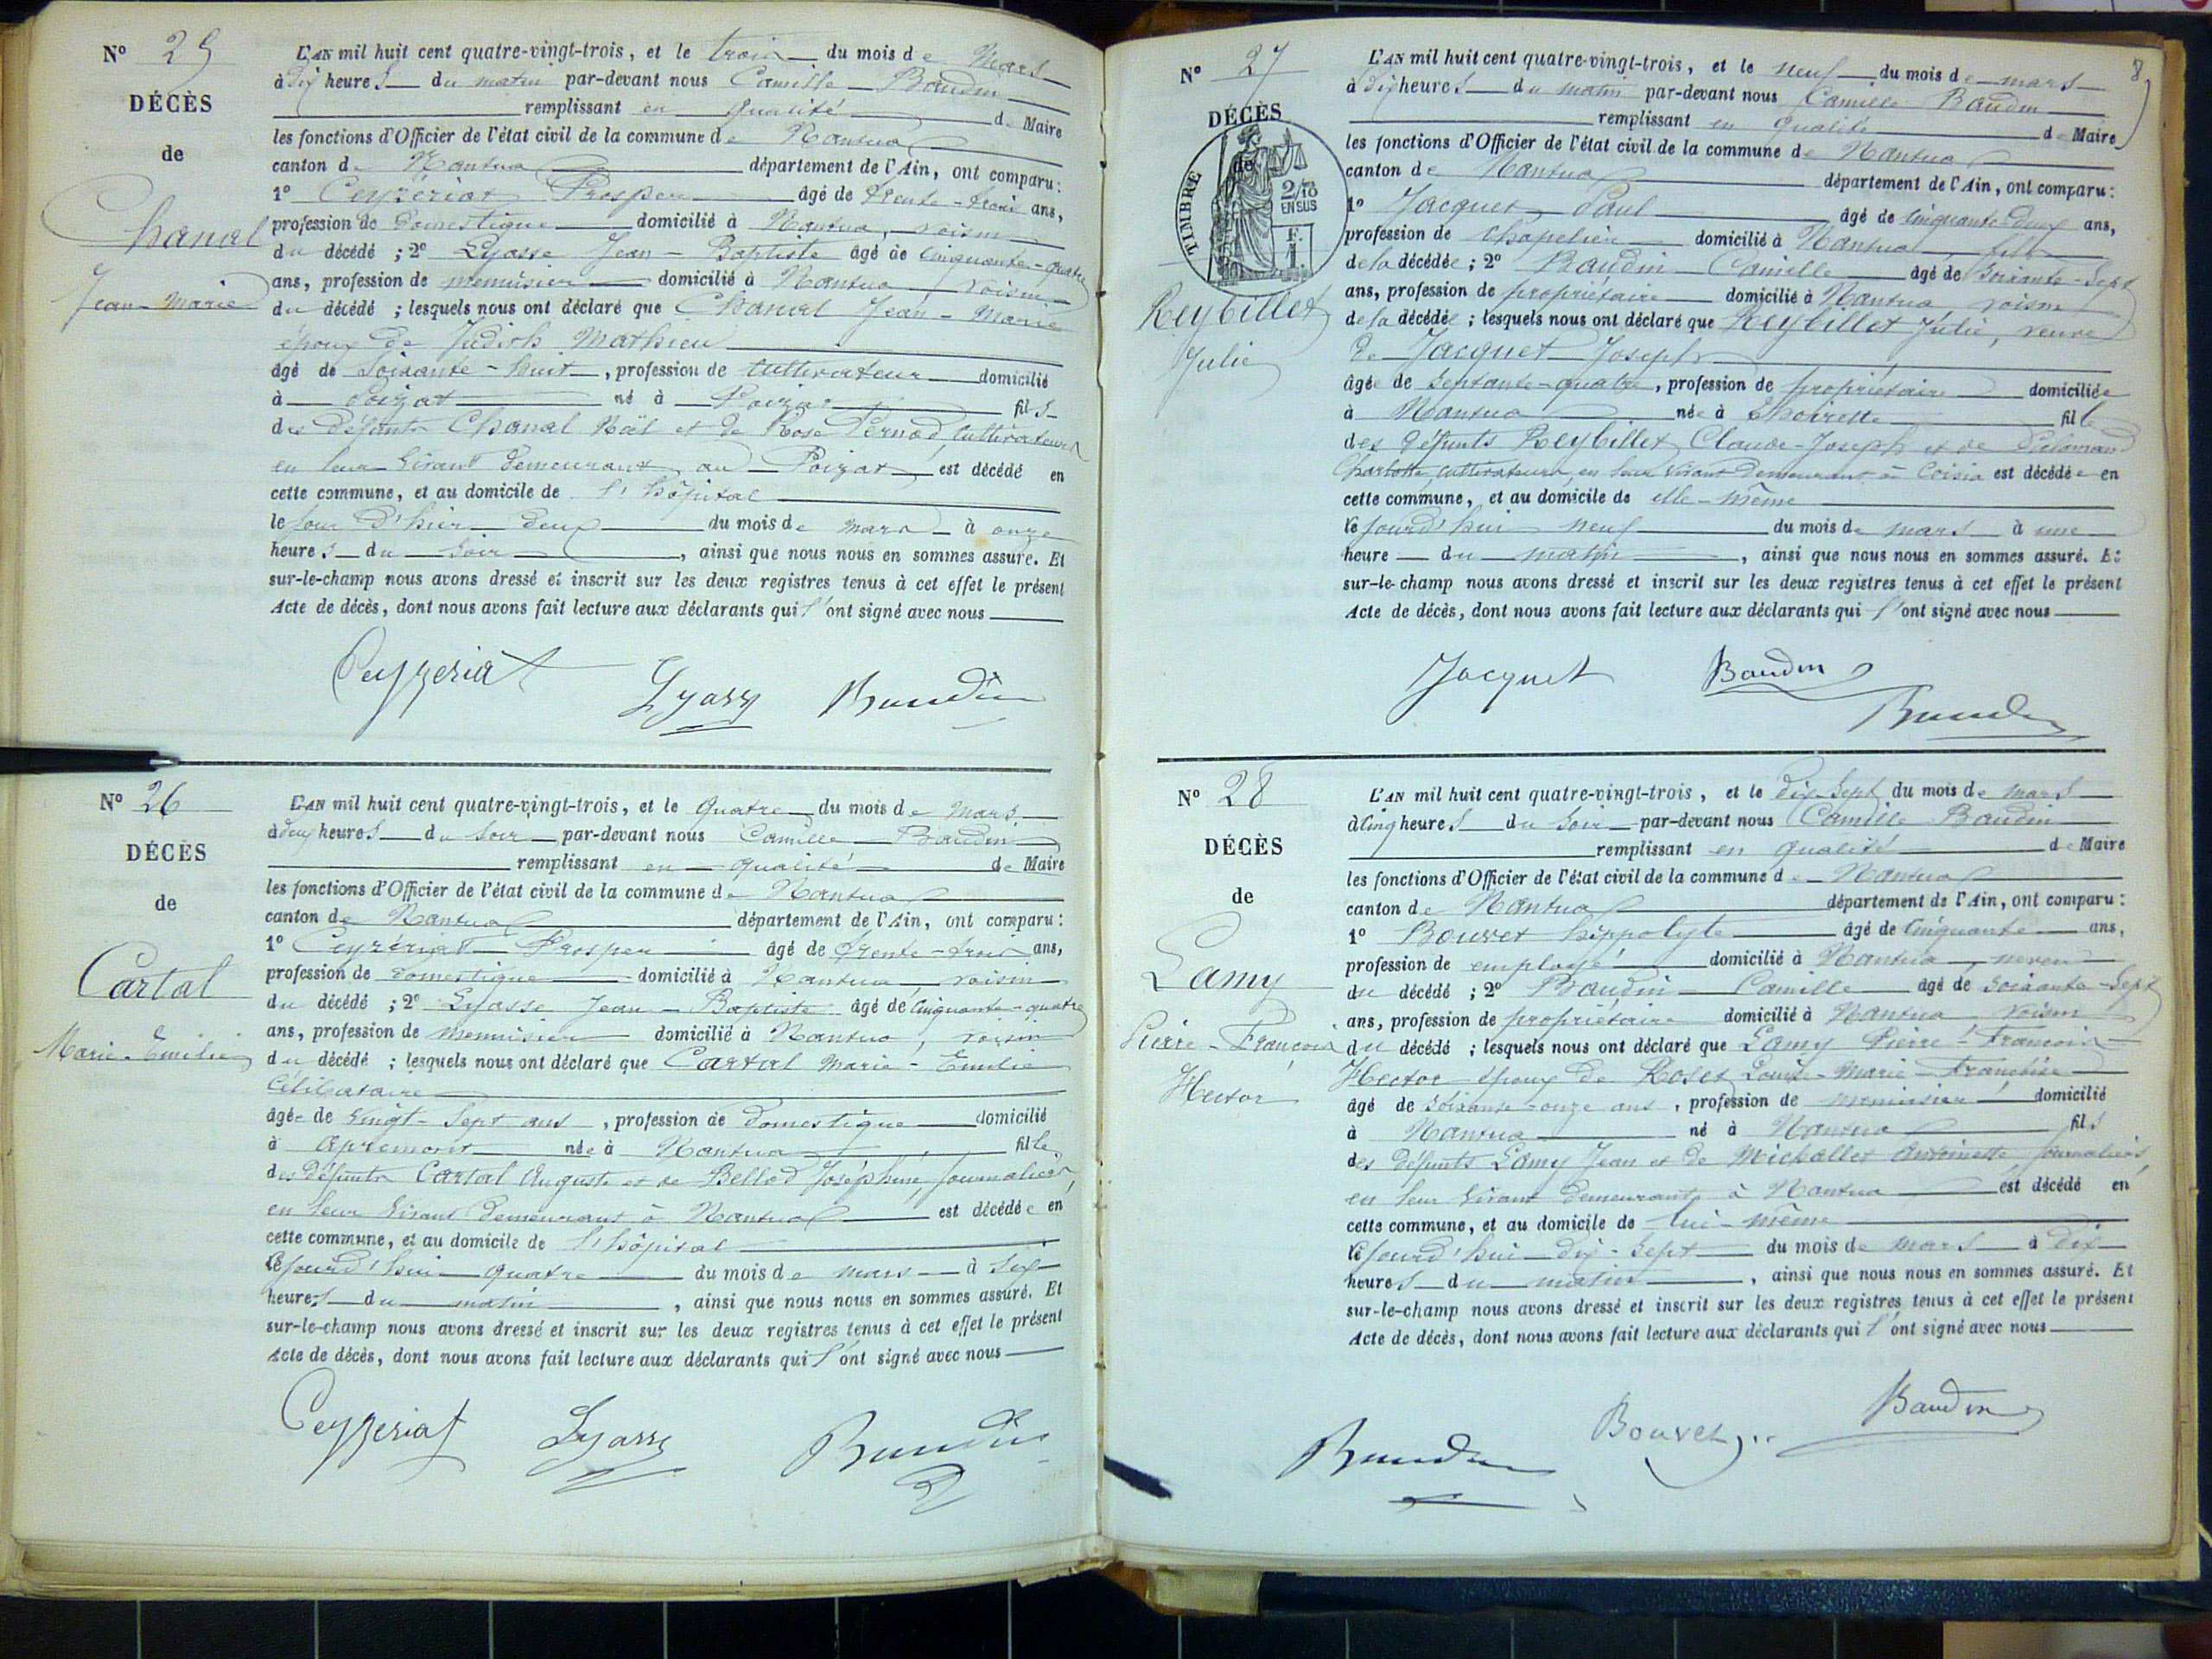 N° 25
DÉCÈS
de
Chanal
Jean-Marie
L'AN mil huit cent quatre-vingt-trois, et le trois du mois de Mars
à dix heures du matin par-devant nous Camille Baudin
remplissant en qualité de Maire
les fonctions d'Officier de l'état civil de la commune de Nantua
canton de Nantua département de l'Ain, ont comparu :
1° Ceyzériat Prosper âgé de trente-trois ans,
profession de domestique domicilié à Nantua, voisin
du décédé ; 2° Lyasse Jean-Baptiste âgé de cinquante-quatre
ans, profession de menuisier domicilié à Nantua voisin
du décédé ; lesquels nous ont déclaré que Chanal Jean-Marie
époux de Judith Mathieu
âgé de soixante-huit, profession de cultivateur domicilié
à Poizat né à Poizat fils
des défunts Chanal Noël et de Rose Pernod, cultivateurs
en leur vivant demeurant au Poizat est décédé en
cette commune, et au domicile de l'hôpital
le jour d'hier deux du mois de mars à onze
heures du soir, ainsi que nous nous en sommes assuré. Et
sur-le-champ nous avons dressé et inscrit sur les deux registres tenus à cet effet le présent
Acte de décès, dont nous avons fait lecture aux déclarants qui l'ont signé avec nous
Ceyzeriat Lyasse Baudin
N° 26
DÉCÈS
de
Cartal
Marie-Emilie
L'AN mil huit cent quatre-vingt-trois, et le quatre du mois de Mars
à deux heures du soir par-devant nous Camille Baudin
remplissant en qualité de Maire
les fonctions d'Officier de l'état civil de la commune de Nantua
canton de Nantua département de l'Ain, ont comparu :
1° Ceyzériat Prosper âgé de trente-trois ans,
profession de domestique domicilié à Nantua, voisin
du décédé ; 2° Lyasse Jean-Baptiste âgé de cinquante-quatre
ans, profession de menuisier domicilié à Nantua, voisin
du décédé ; lesquels nous ont déclaré que Cartal Marie-Emilie
célibataire
âgée de vingt-sept ans, profession de domestique domicilié
à Apremont née à Nantua fille
des défunts Cartal Auguste et de Bellod Joséphine, journaliers,
en leur vivant demeurant à Nantua est décédée en
cette commune, et au domicile de l'hôpital
le jourd'hui quatre du mois de mars à six
heures du matin, ainsi que nous nous en sommes assuré. Et
sur-le-champ nous avons dressé et inscrit sur les deux registres tenus à cet effet le présent
Acte de décès, dont nous avons fait lecture aux déclarants qui l'ont signé avec nous
Ceyzeriat Lyasse Baudin
8
N° 27
DÉCÈS
de
TIMBRE
2/10
EN SUS
F.
Reybillet
Julie
L'AN mil huit cent quatre-vingt-trois, et le neuf du mois de mars
à dix heures du matin par-devant nous Camille Baudin
remplissant en qualité de Maire
les fonctions d'Officier de l'état civil de la commune de Nantua
canton de Nantua département de l'Ain, ont comparu :
1° Jacquet Paul âgé de cinquante-deux ans,
profession de chapelier domicilié à Nantua fils
de la décédée ; 2° Baudin Camille âgé de soixante-sept
ans, profession de propriétaire domicilié à Nantua voisin
de la décédée ; lesquels nous ont déclaré que Reybillet Julie, veuve
de Jacquet Joseph
âgée de septante-quatre, profession de propriétaire domiciliée
à Nantua née à Thoirette fille
des défunts Reybillet Claude-Joseph et de
Charlotte, cultivateurs, en leur vivant demeurant à Coisia est décédée en
cette commune, et au domicile de elle-même
le jourd'hui neuf du mois de mars à une
heure du matin, ainsi que nous nous en sommes assuré. Et
sur-le-champ nous avons dressé et inscrit sur les deux registres tenus à cet effet le présent
Acte de décès, dont nous avons fait lecture aux déclarants qui l'ont signé avec nous
Jacquet Baudin
Baudin
N° 28
DÉCÈS
de
Lamy
Pierre-François
Hector
L'AN mil huit cent quatre-vingt-trois, et le dix-sept du mois de mars
à cinq heures du soir par-devant nous Camille Baudin
remplissant en qualité de Maire
les fonctions d'Officier de l'état civil de la commune de Nantua
canton de Nantua département de l'Ain, ont comparu :
1° Bouvet hippolyte âgé de cinquante ans,
profession de employé domicilié à Nantua, neveu
du décédé ; 2° Baudin Camille âgé de soixante-sept
ans, profession de propriétaire domicilié à Nantua, voisin
du décédé ; lesquels nous ont déclaré que Lamy Pierre-François
Hector époux de Rolet Louise-Marie-Françoise
âgé de soixante-onze ans, profession de menuisier domicilié
à Nantua né à Nantua fils
des défunts Lamy Jean et de Michallet Antoinette journaliers,
en leur vivant demeurant à Nantua est décédé en
cette commune, et au domicile de lui-même
le jourd'hui dix-sept du mois de mars à dix
heures du matin, ainsi que nous nous en sommes assuré. Et
sur-le-champ nous avons dressé et inscrit sur les deux registres tenus à cet effet le présent
Acte de décès, dont nous avons fait lecture aux déclarants qui l'ont signé avec nous
Baudin Bouvet Baudin